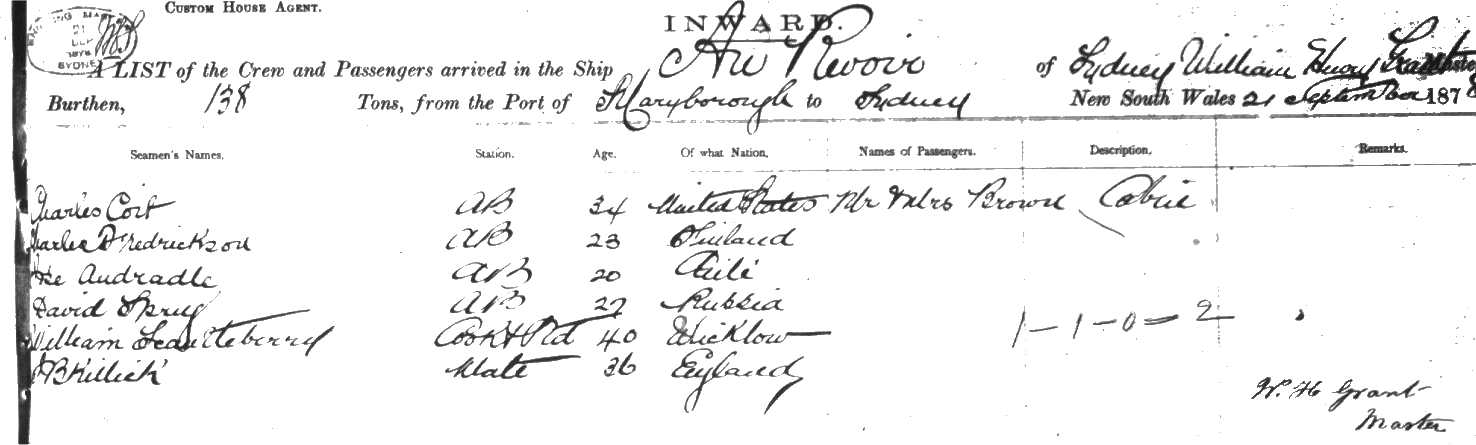 CUSTOM HOUSE AGENT.
INWARD.
SHIPPING MASTER 21 SEP 1878 SYDNEY
A LIST of the Crew and Passengers arrived in the Ship Au Revoir of Sydney William Henry Grant Master
Burthen, 138 Tons, from the Port of Maryborough to Sydney New South Wales 21 September 1878
Seamen's Names. Station. Age. Of what Nation. Names of Passengers. Description. Remarks.
Charles Coit AB 34 United States Mr & Mrs Brown Cabin
Charles Fredrickson AB 23 Finland
Andradle AB 20 Chili
David AB 27 Russia
William Cook & Std 40 Wicklow
Killick Mate 36 England
1-1-0=2
W. H. Grant
Master